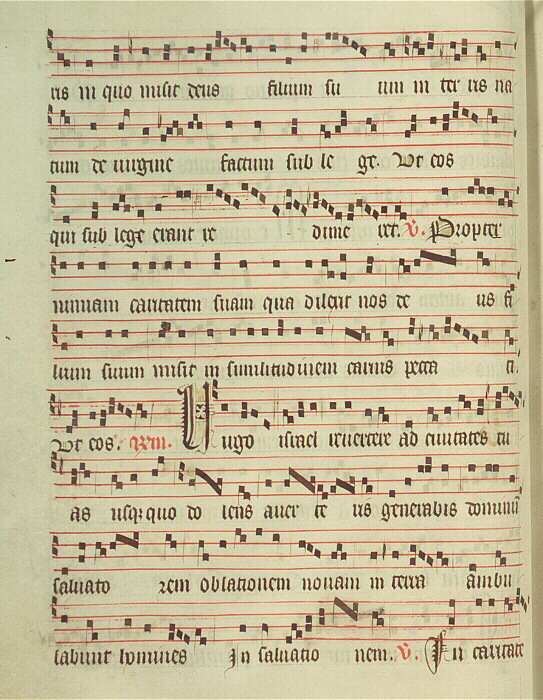 ris in quo misit deus filium su um in ter ris na
tum de uirgine factum sub le ge. Vt eos
qui sub lege erant re dime ret. V. Propter
nimiam caritatem suam qua dilexit nos de us fi
lium suum misit in similitudinem carnis pecca ti.
Vt eos. Uirgo israel reuertere ad ciuitates tu
as usq; quo do lens auer te ris generabis dominū
saluato rem oblationem nouam in terra ambu
labunt homines In saluatio nem. V. In caritate